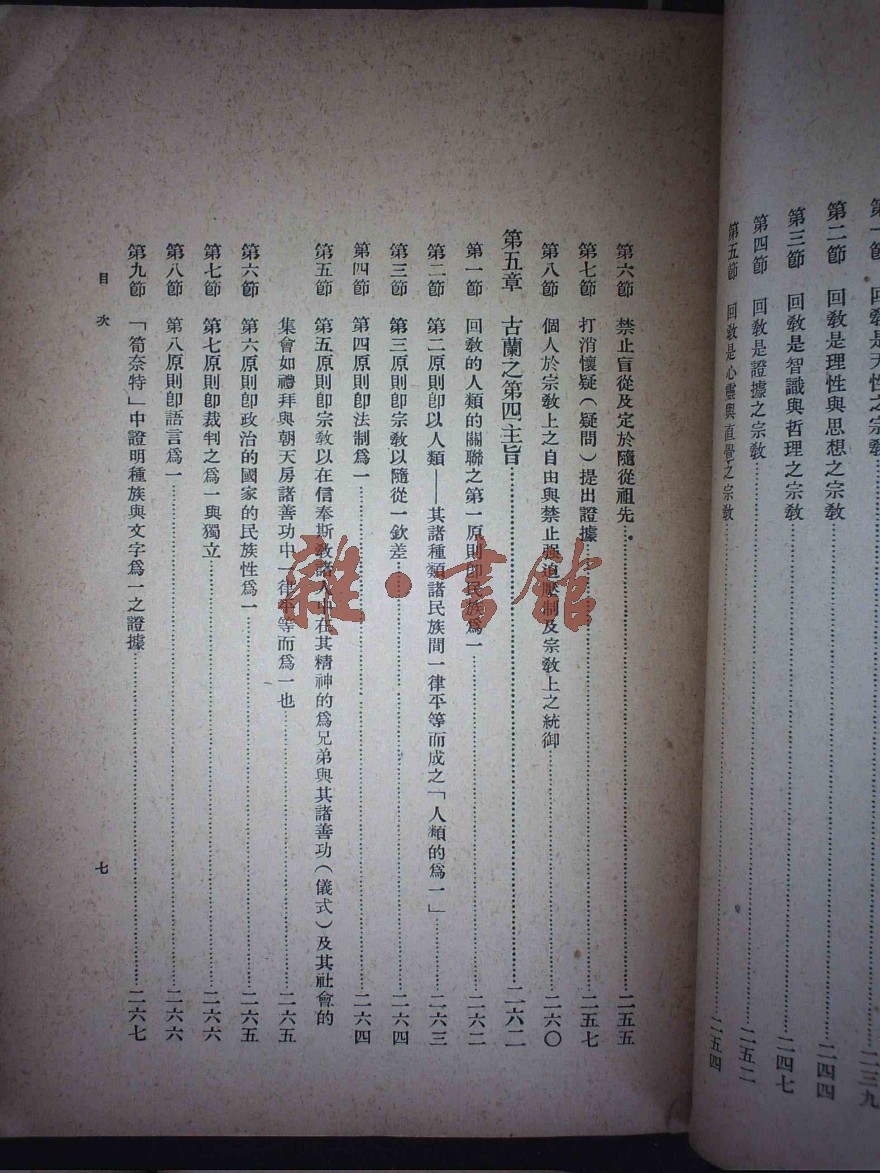 第一節 回敎是天性之宗敎……二三九
第二節 回敎是理性與思想之宗敎……二四四
第三節 回敎是智識與哲理之宗敎……二四七
第四節 回敎是證據之宗敎……二五二
第五節 回敎是心靈與直覺之宗敎……二五四
第六節 禁止盲從及定於隨從祖先……二五五
第七節 打消懷疑(疑問)提出證據……二五七
第八節 個人於宗敎上之自由與禁止强迫壓制及宗敎上之統御……二六〇
第五章 古蘭之第四主旨……二六二
第一節 回敎的人類的關聯之第一原則卽民族爲一……二六二
第二節 第二原則卽以人類——其諸種類諸民族間一律平等而成之「人類的爲一」……二六三
第三節 第三原則卽宗敎以隨從一欽差……二六四
第四節 第四原則卽法制爲一……二六四
第五節 第五原則卽宗敎以在信奉斯敎諸人中在其精神的爲兄弟與其諸善功(儀式)及其社會的
集會如禮拜與朝天房諸善功中一律平等而爲一也……二六五
第六節 第六原則卽政治的國家的民族性爲一……二六五
第七節 第七原則卽裁判之爲一與獨立……二六六
第八節 第八原則卽語言爲一……二六六
第九節 「筍奈特」中證明種族與文字爲一之證據……二六七
目次
七
雜·書館